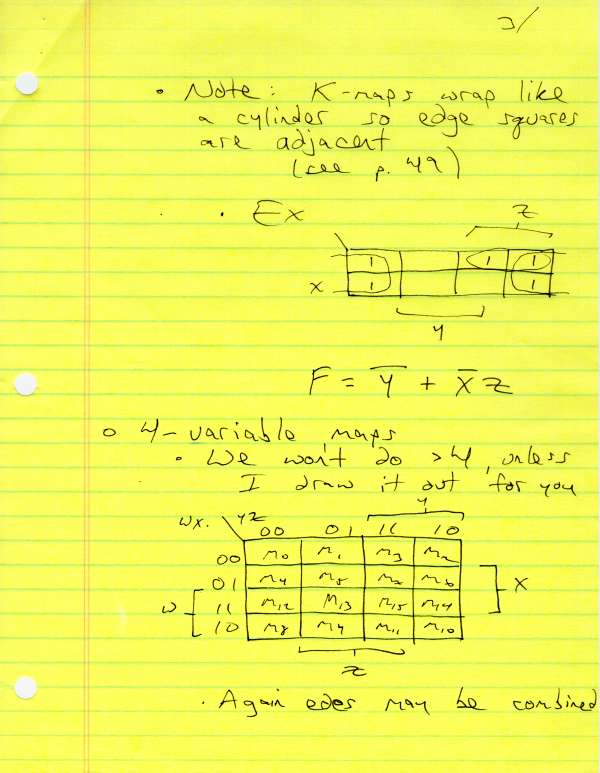 3/
• Note: K-maps wrap like
a cylinder so edge squares
are adjacent
(see p. 49)
• Ex
z
1 1 1
x 1 1
y
F = y̅ + x̅z
o 4-variable maps
• We won't do >4, unless
I draw it out for you
y
wx. yz 00 01 11 10
00 m0 m1 m3 m2
01 m4 m5 m7 m6 x
w 11 m12 m13 m15 m14
10 m8 m9 m11 m10
z
• Again edes may be combined